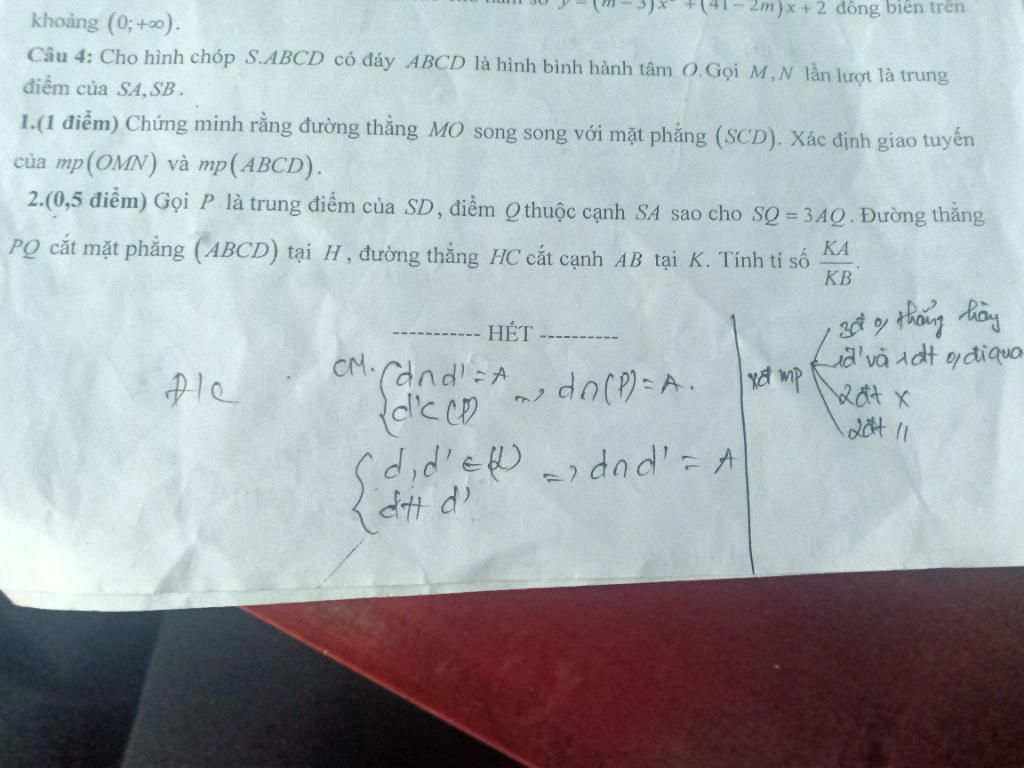 y = (m − 3)x² + (41 − 2m)x + 2 đồng biến trên
khoảng (0;+∞).
Câu 4: Cho hình chóp S.ABCD có đáy ABCD là hình bình hành tâm O.Gọi M,N lần lượt là trung
điểm của SA,SB.
1.(1 điểm) Chứng minh rằng đường thẳng MO song song với mặt phẳng (SCD). Xác định giao tuyến
của mp(OMN) và mp(ABCD).
2.(0,5 điểm) Gọi P là trung điểm của SD, điểm Q thuộc cạnh SA sao cho SQ = 3AQ. Đường thẳng
PQ cắt mặt phẳng (ABCD) tại H, đường thẳng HC cắt cạnh AB tại K. Tính tỉ số KA/KB.
----------- HẾT ----------
Đ/C
CM. { d∩d' = A => d∩(P) = A.
d'⊂(P)
{ d,d' ∈ (α) => d∩d' = A
d∦d'
xđ mp
3đ o thẳng hàng
1đ' và 1đt o đi qua
2đt x
2đt //